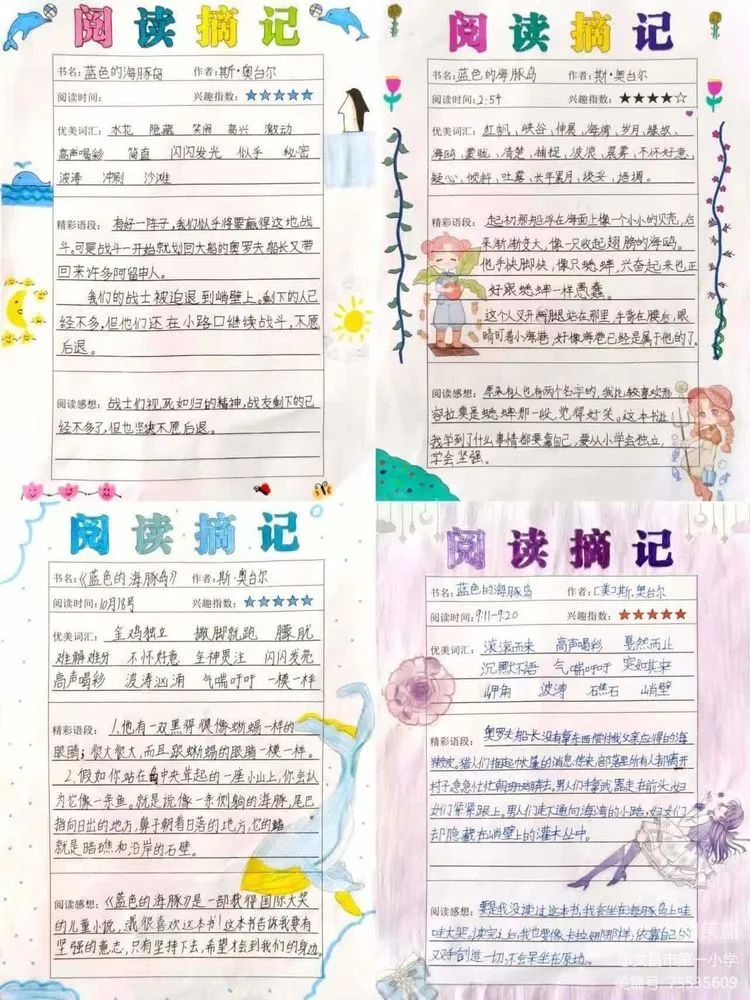 阅读摘记
书名：蓝色的海豚岛 作者：斯·奥台尔
阅读时间： 兴趣指数：★★★★★
优美词汇：水花 隐藏 笑闹 高兴 激动
高声喝彩 简直 闪闪发光 似乎 秘密
波涛 冲刷 沙滩
精彩语段：有好一阵子，我们似乎将要赢得这地战
斗。可是战斗一开始就划回大船的奥罗夫船长又带
回来许多阿留申人。
我们的战士被迫退到峭壁上。剩下的人已
经不多，但他们还在小路口继续战斗，不愿
后退。
阅读感想：战士们视死如归的精神，战友剩下的已
经不多了，但也坚决不愿后退。
阅读摘记
书名：蓝色的海豚岛 作者：斯·奥台尔
阅读时间：2:54 兴趣指数：★★★★☆
优美词汇：红帆、峡谷、伸展、海湾、岁月、缘故、
海鸥、蒙眬、清楚、捕捉、波浪、晨雾、不怀好意、
疑心、倾斜、吐露、长年累月、
精彩语段：起初那船浮在海面上像一个小小的贝壳，后
来渐渐变大，像一只收起翅膀的海鸥。
他手快脚快，像只蟋蟀，兴奋起来也正
好跟蟋蟀一样愚蠢。
这个人叉开两腿站在那里，手靠在腰台，眼
睛盯着小海港，好像海港已经是属于他的了。
阅读感想：原来有人也有两个名字的，我比较喜欢形
容拉莫是蟋蟀那一段，觉得好笑。这本书让
我学到了什么事情都要靠自己，要从小学会独立，
学会坚强。
阅读摘记
书名：《蓝色的海豚岛》 作者：斯·奥台尔
阅读时间：10月18号 兴趣指数：★★★★★
优美词汇：金鸡独立 撒脚就跑 朦胧
难解难分 不怀好意 全神贯注 闪闪发亮
高声喝彩 波涛汹涌 气喘吁吁 一模一样
精彩语段：1.他有一双黑得很像蜥蜴一样的
眼睛；很大很大，而且跟蜥蜴的眼睛一模一样。
2.假如你站在中央耸起的一座小山上，你会认
为它像一条鱼。就是说像一条侧躺的海豚，尾巴
指向日出的地方，鼻子朝着日落的地方，它的鳍
就是暗礁和沿岸的石壁。
阅读感想：《蓝色的海豚》是一部获得国际大奖
的儿童小说，我很喜欢这本书！这本书告诉我要有
坚强的意志，只有坚持下去，希望才会到我们的身边。
阅读摘记
书名：蓝色的海豚岛 作者：[美]斯.奥台尔
阅读时间：9:11-9:20 兴趣指数：★★★★★
优美词汇：滚滚而来 高声喝彩 戛然而止
沉默不语 气喘吁吁 突如其来
岬角 波涛 石礁石 峭壁
精彩语段：奥罗夫船长没有拿东西偿付我父亲应得的海
獭皮。猎人们捂起帐篷的消息传来，部落里所有人都离开
村子急急忙忙朝珊瑚湾去。男人们拿武器走在前头，妇
女们紧紧跟上。男人们走下通向海湾的小路，妇女们
却隐藏在峭壁上的灌木丛中。
阅读感想：要是我没读过这本书，我会坐在海豚岛上哇
哇大哭。读完之后，我也要像卡拉娜那样，依靠自己的
双手创造一切，不会呆坐在原地。
美篇
文昌市第一小学
美篇号：75535609